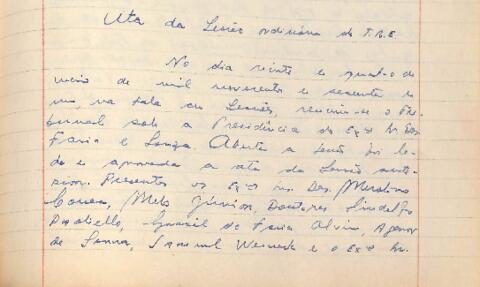 Ata da Sessão ordinária do T.R.E.
No dia vinte e quatro de
maio de mil novecentos e sessenta e
um na sala das Sessões, reuniu-se o Tri-
bunal sob a Presidência do Exº Sr. Des.
Faria e Souza. Aberta a sessão foi li-
da e aprovada a ata da Sessão ante-
rior. Presentes os Exºs srs. Des. Merolino
Corrêa, Melo Júnior, Doutores Lindolfo
Paoliello, de Faria Alvim, Agenor
de Senna, Samuel Werneck e o Exº Sr.